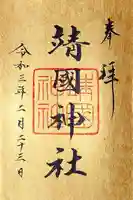 奉拝
靖國神社
令和三年二月二十三日